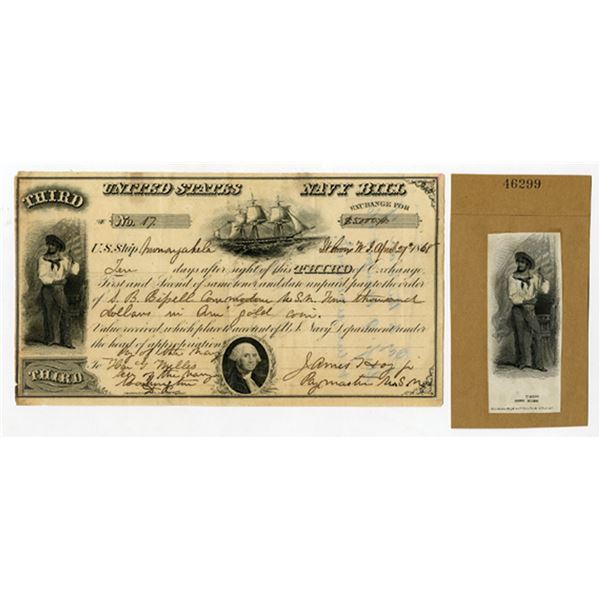 THIRD
UNITED STATES NAVY BILL
EXCHANGE FOR
No. 17.
U.S. Ship Monongahela St Croix W.I. April 27th 186
Ten days after sight of this THIRD of Exchange
First and Second of same tenor and date unpaid pay to the order
of S. B. Bissell Commodore U.S.N. thousand
dollars in Am gold coin.
Value received, which place to account of U.S. Navy Department under
the head of appropriation
Pay of the Navy
To Hon G Welles James Hoy Jr
Sec of the Navy Paymaster U.S.N.
Washington
THIRD
46299